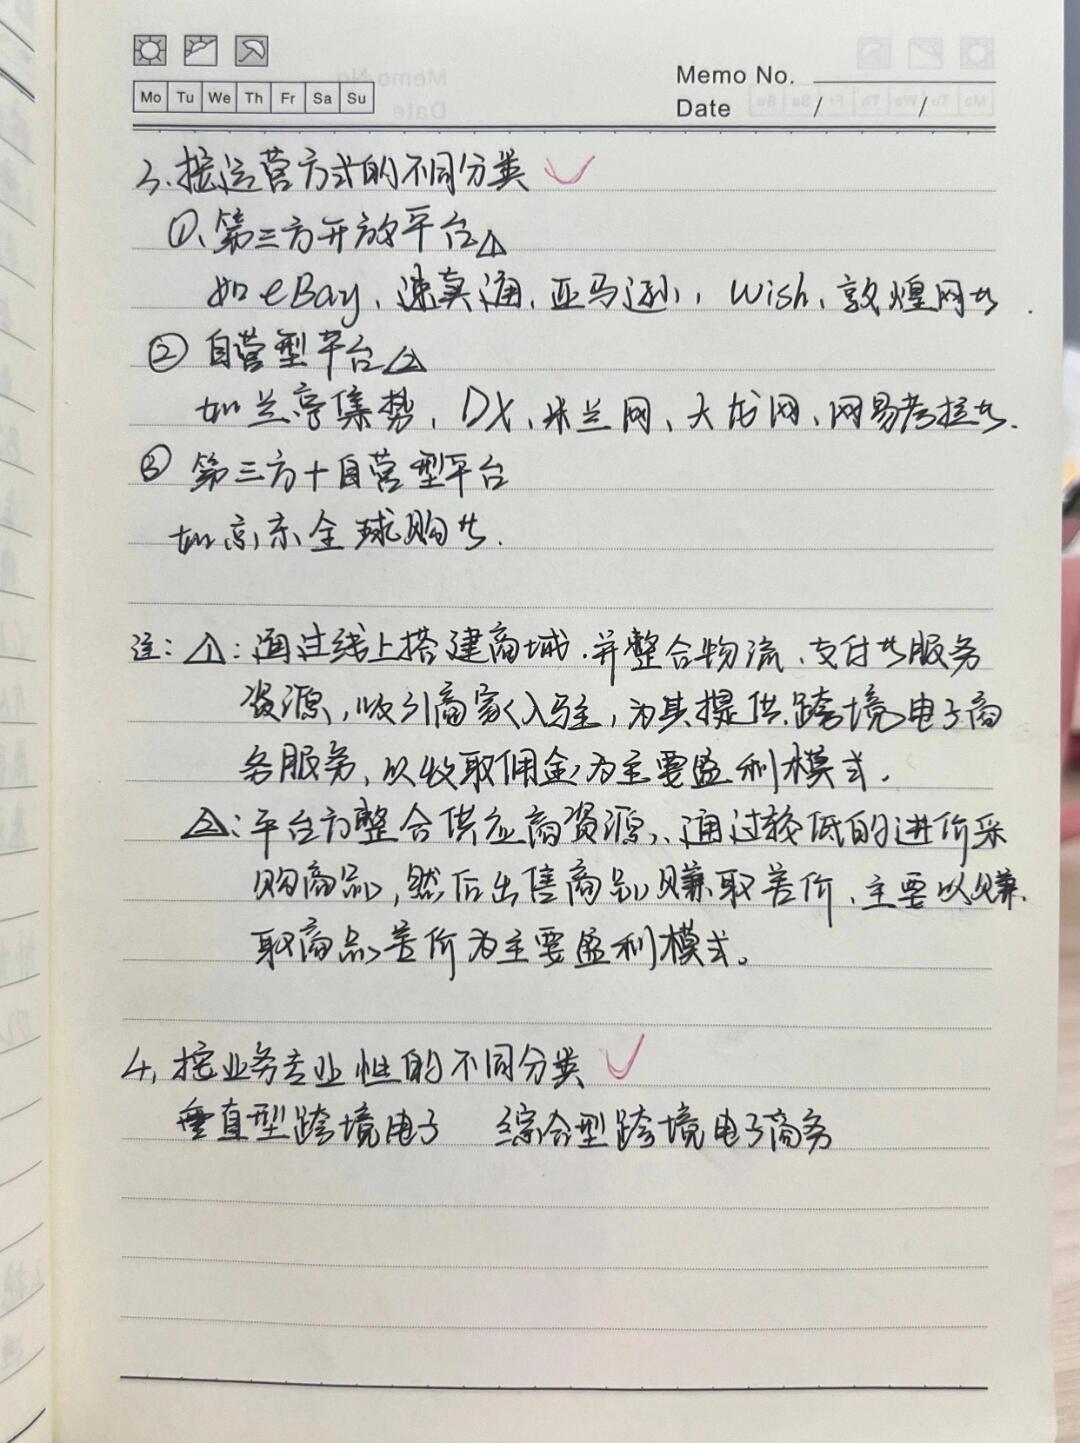 Memo No.
Mo Tu We Th Fr Sa Su
Date / /
3.按运营方式的不同分类
①、第三方开放平台△1
如eBay、速卖通、亚马逊、Wish、敦煌网等.
② 自营型平台△2
如兰亭集势、DX、米兰网、大龙网、网易考拉等.
③ 第三方+自营型平台
如京东全球购等.
注:△1:通过线上搭建商城.并整合物流、支付等服务
资源,吸引商家入驻,为其提供跨境电子商
务服务,以收取佣金为主要盈利模式.
△2:平台方整合供应商资源、通过较低的进价采
购商品,然后出售商品赚取差价、主要以赚
取商品差价为主要盈利模式。
4、按业务专业性的不同分类
垂直型跨境电子 综合型跨境电子商务